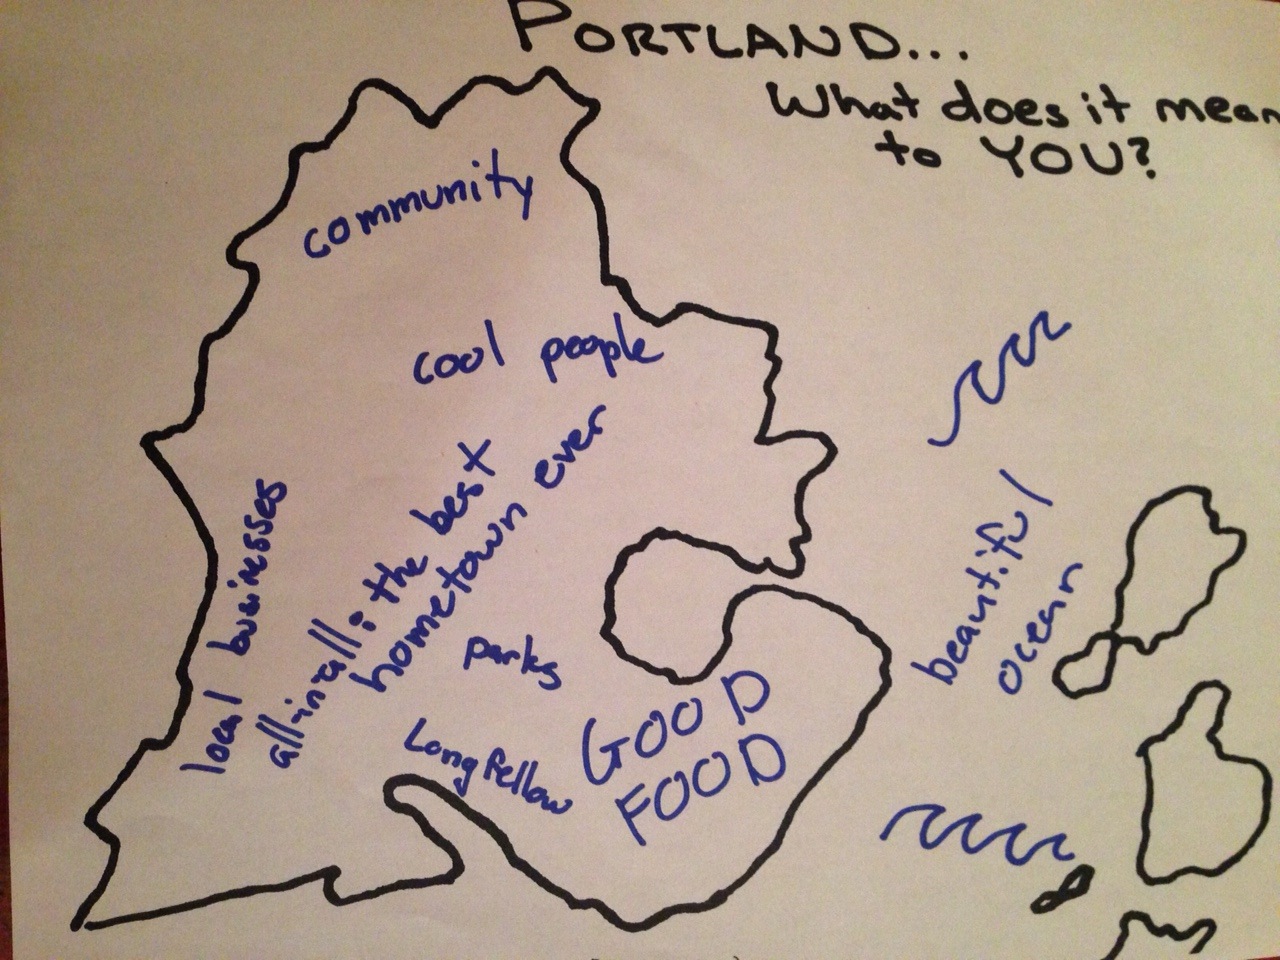 PORTLAND...
What does it mean
to YOU?
community
cool people
local businesses
all-in-all: the best
hometown ever
parks
Longfellow
GOOD
FOOD
beautiful
ocean